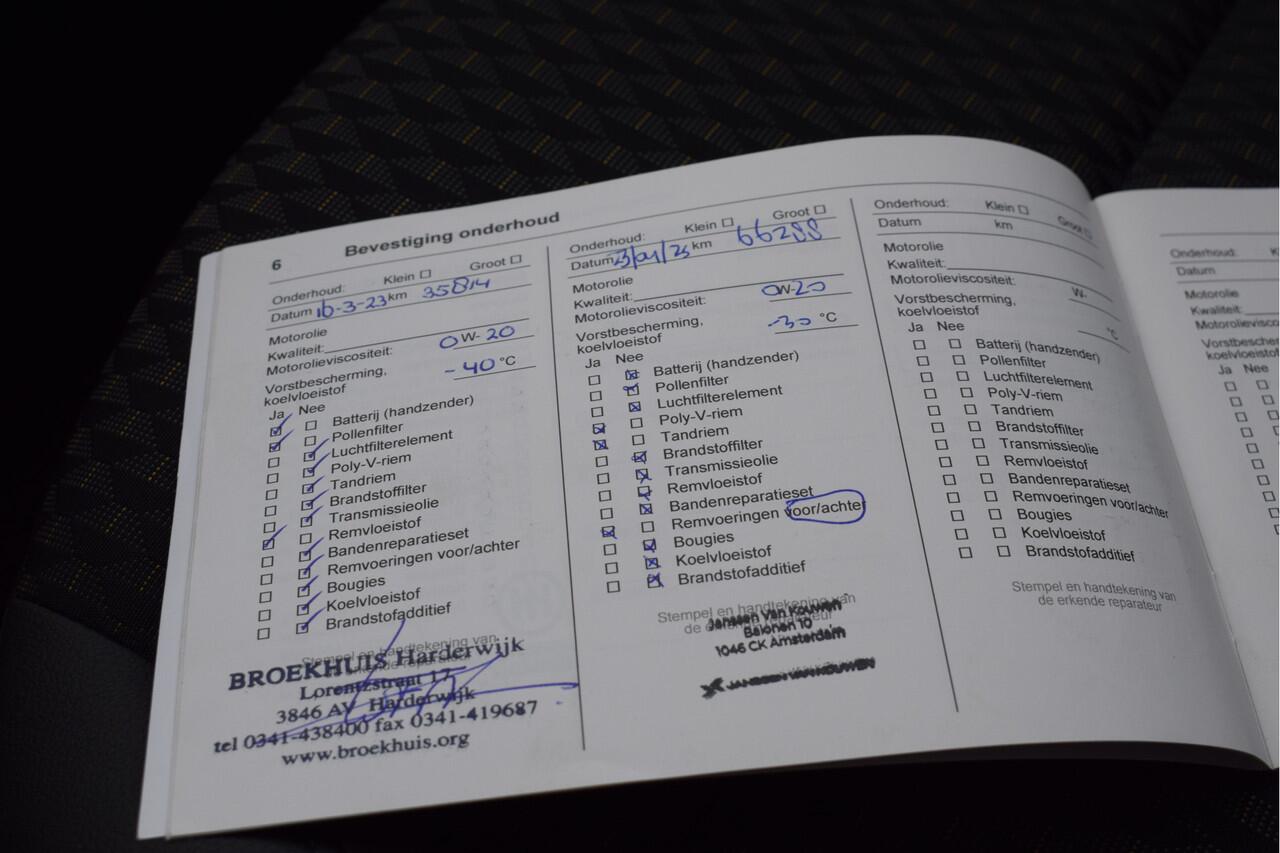 6 Bevestiging onderhoud
Onderhoud: Klein ☐ Groot ☐
Datum 16-3-23 km 35814
Motorolie
Kwaliteit:
Motorolieviscositeit: 0W-20
Vorstbescherming,
koelvloeistof -40 °C
Ja Nee
Batterij (handzender)
Pollenfilter
Luchtfilterelement
Poly-V-riem
Tandriem
Brandstoffilter
Transmissieolie
Remvloeistof
Bandenreparatieset
Remvoeringen voor/achter
Bougies
Koelvloeistof
Brandstofadditief
Stempel en handtekening van
de erkende reparateur
BROEKHUIS Harderwijk
Lorentzstraat 17
3846 AV Harderwijk
tel 0341-438400 fax 0341-419687
www.broekhuis.org
Onderhoud: Klein ☐ Groot ☐
Datum 23/01/25 km 66288
Motorolie
Kwaliteit:
Motorolieviscositeit: 0W-20
Vorstbescherming,
koelvloeistof -30 °C
Ja Nee
Batterij (handzender)
Pollenfilter
Luchtfilterelement
Poly-V-riem
Tandriem
Brandstoffilter
Transmissieolie
Remvloeistof
Bandenreparatieset
Remvoeringen voor/achter
Bougies
Koelvloeistof
Brandstofadditief
Stempel en handtekening van
de erkende reparateur
Janssen Van Kouwen
1046 CK Amsterdam
JANSSEN VAN KOUWEN
Onderhoud: Klein ☐ Groot ☐
Datum km
Motorolie
Kwaliteit:
Motorolieviscositeit: W-
Vorstbescherming,
koelvloeistof °C
Ja Nee
Batterij (handzender)
Pollenfilter
Luchtfilterelement
Poly-V-riem
Tandriem
Brandstoffilter
Transmissieolie
Remvloeistof
Bandenreparatieset
Remvoeringen voor/achter
Bougies
Koelvloeistof
Brandstofadditief
Stempel en handtekening van
de erkende reparateur
Onderhoud: K
Datum
Motorolie
Kwaliteit:
Motorolievisco
Vorstbescher
koelvloeisto
Ja Nee